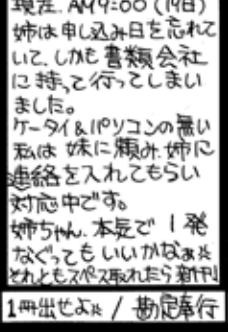 現在、AM9:00(19日)
姉は申し込み日を忘れて
いて、しかも書類会社
に持って行ってしまい
ました。
ケータイ&パソコンの無い
私は妹に頼み、姉に
連絡を入れてもらい
対応中です。
姉ちゃん、本気で1発
なぐってもいいかなぁ☆
それともスペース取れたら新刊
1冊出せよ☆ / 勘定奉行